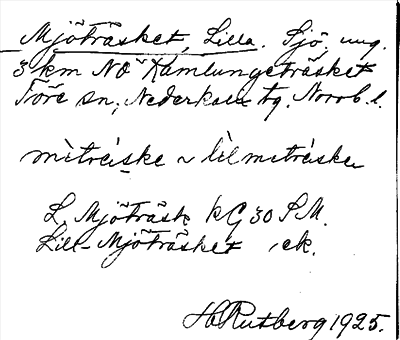 Mjöträsket, Lilla. Sjö, ung.
3 km NO Kamlungeträsket
Töre sn, Nederkalix tg. Norrb. l.
mitreiske ~ lilmitreiske
L. Mjöträsk kG 30 S.M.
Lill-Mjöträsket , ek.
H Rutberg 1925.